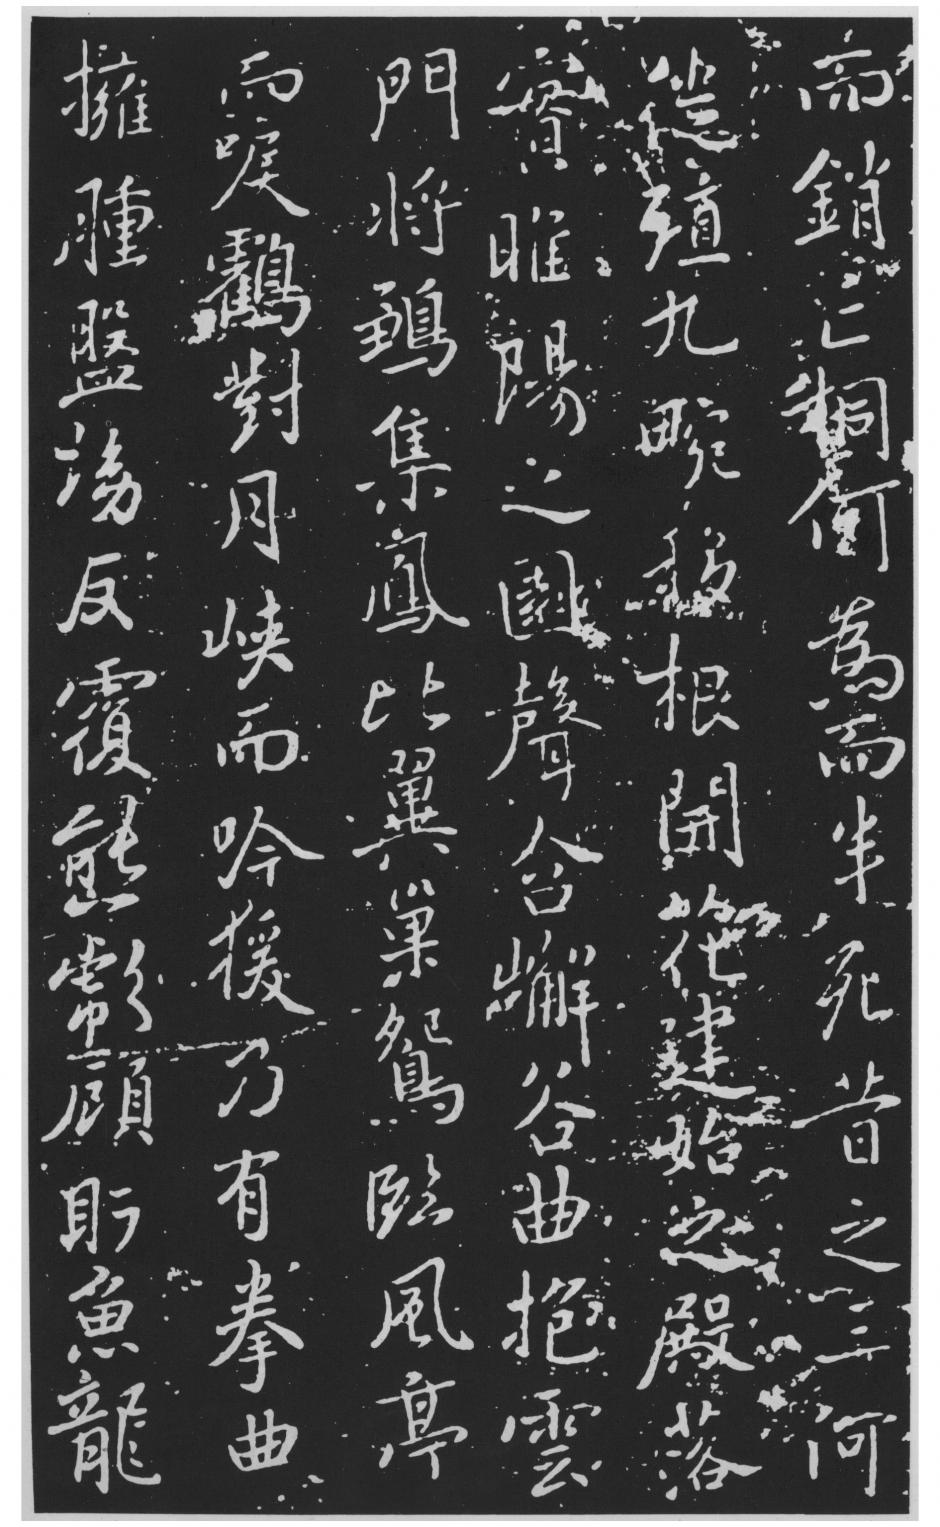 而銷亡桐何為而半死昔之三河
徙殖九畹移根開花建始之殿落
實睢陽之園聲含嶰谷曲抱雲
門將鶵集鳳比翼巢鴛臨風亭
而唳鶴對月峽而吟猨乃有拳曲
擁腫盤坳反覆熊彪顧盼魚龍